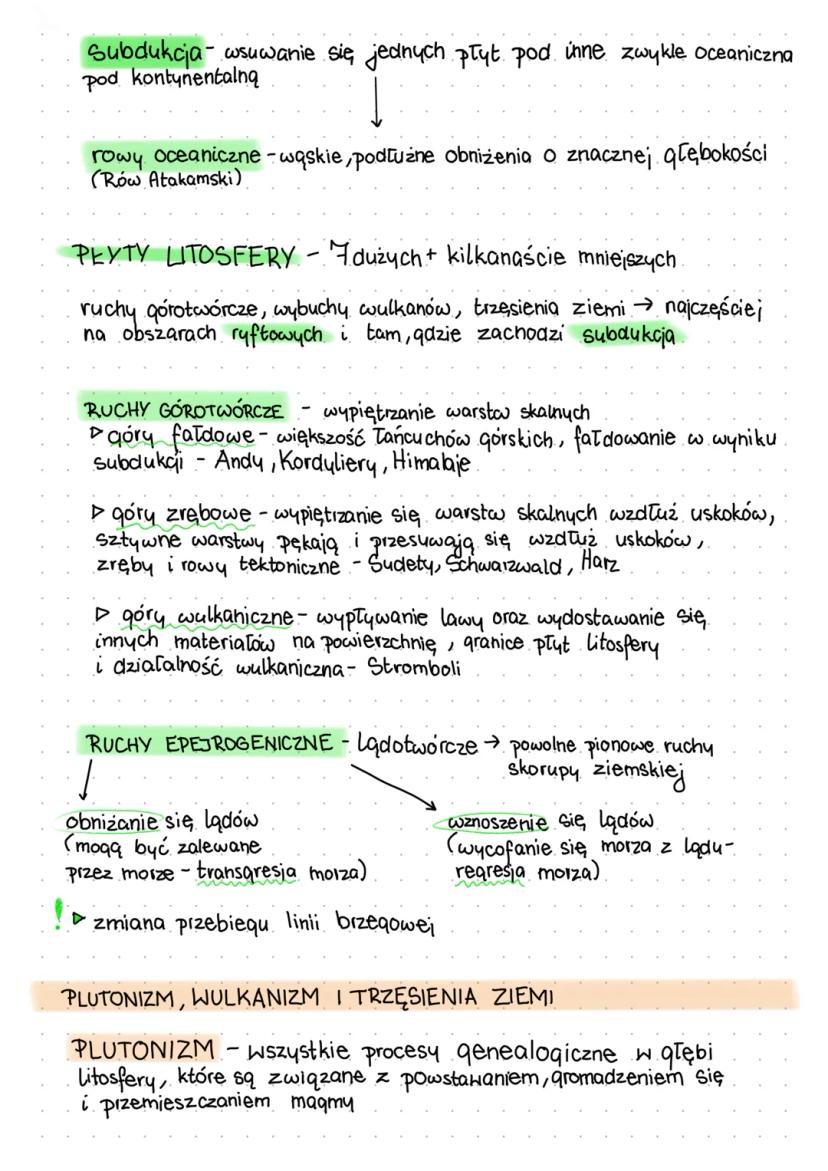 Subdukcja - wsuwanie się jednych płyt pod inne zwykle oceaniczna
pod kontynentalną
rowy oceaniczne - wąskie, podłużne obniżenia o znacznej głębokości
(Rów Atakamski)
PŁYTY LITOSFERY - 7 dużych + kilkanaście mniejszych
ruchy górotwórcze, wybuchy wulkanów, trzęsienia ziemi → najczęściej
na obszarach ryftowych i tam, gdzie zachodzi subdukcja
RUCHY GÓROTWÓRCZE - wypiętrzanie warstw skalnych
▷ góry fałdowe - większość łańcuchów górskich, fałdowanie w wyniku
subdukcji - Andy, Kordyliery, Himalaje
▷ góry zrębowe - wypiętrzanie się warstw skalnych wzdłuż uskoków,
sztywne warstwy pękają i przesuwają się wzdłuż uskoków,
zręby i rowy tektoniczne - Sudety, Schwarzwald, Harz
▷ góry wulkaniczne - wypływanie lawy oraz wydostawanie się
innych materiałów na powierzchnię, granice płyt litosfery
i działalność wulkaniczna - Stromboli
RUCHY EPEJROGENICZNE - lądotwórcze → powolne pionowe ruchy
skorupy ziemskiej
obniżanie się lądów
(mogą być zalewane
przez morze - transgresja morza)
wznoszenie się lądów
(wycofanie się morza z lądu -
regresja morza)
! ▷ zmiana przebiegu linii brzegowej
PLUTONIZM, WULKANIZM I TRZĘSIENIA ZIEMI
PLUTONIZM - wszystkie procesy genealogiczne w głębi
litosfery, które są związane z powstawaniem, gromadzeniem się
i przemieszczaniem magmy